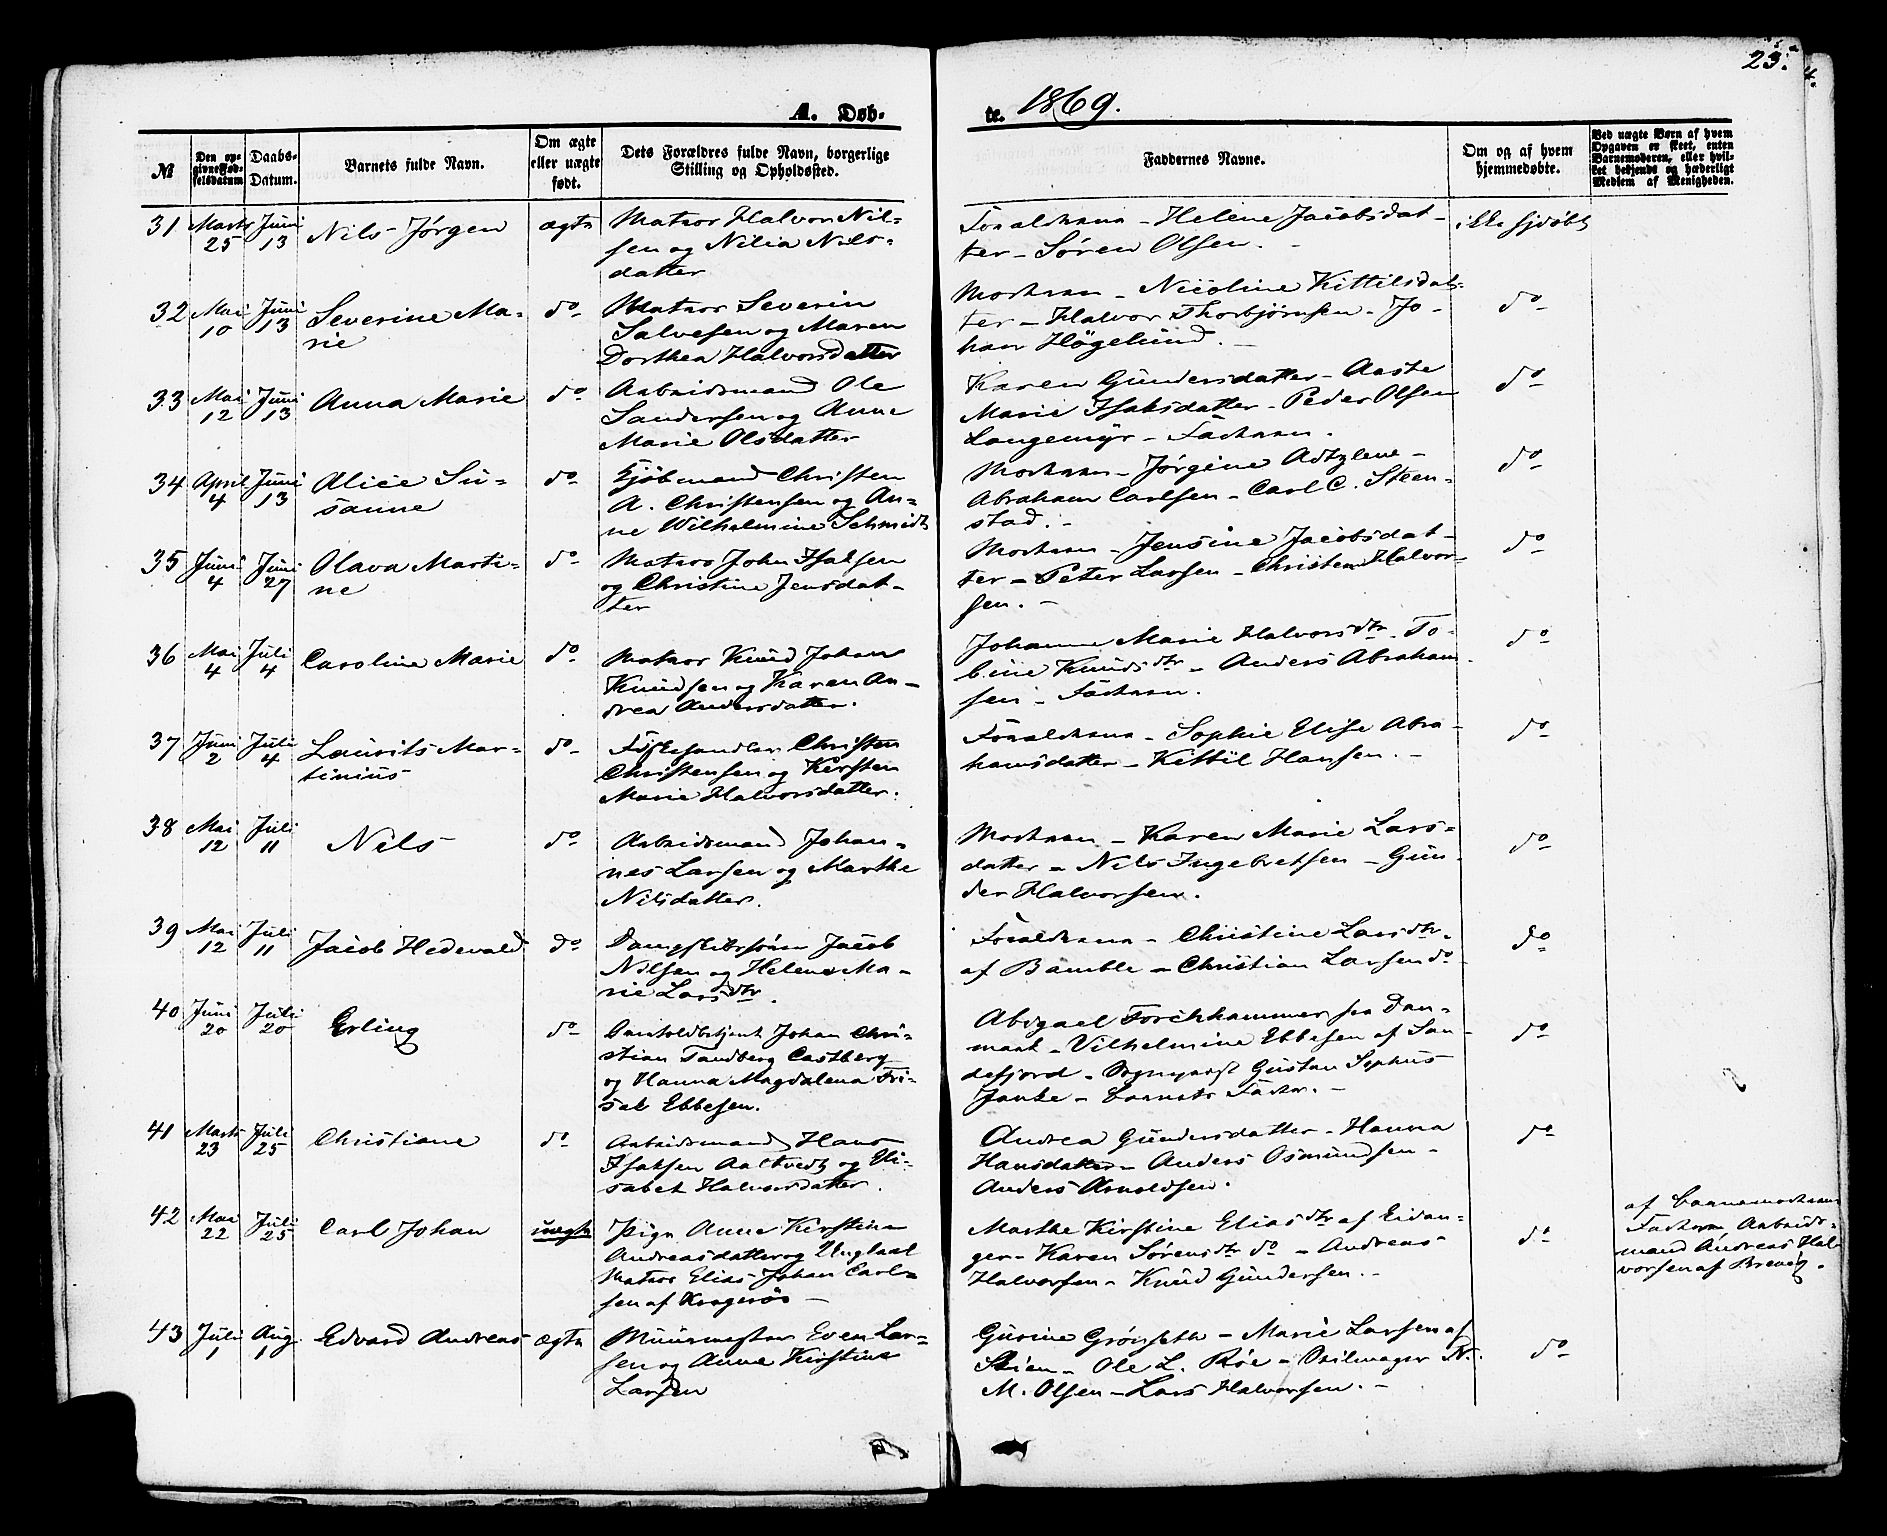 23.
A. Døb-
te. 1869.
№
Den op-
givne Fød-
selsdatum
Daabs-
Datum.
Barnets fulde Navn.
Om ægte
eller uægte
født.
Dets Forældres fulde Navn, borgerlige
Stilling og Opholdssted.
Faddernes Navne.
Om og af hvem
hjemmedøbte.
Ved uægte Børn af hvem
Opgaven er skeet, enten
Barnemoderen, eller hvil-
ket bekjendt og hæderligt
Medlem af Menigheden.
31 Marts 25 Juni 13 Nils Jørgen ægte
Matros Halvor Nil-
sen og Nilia Nils-
datter
Forældrene - Helene Jacobsdat-
ter - Søren Olsen. -
ikke hjdøbt
32 Mai 10 Juni 13 Severine Ma-
rie
do
Matros Severin
Salvesen og Maren
Dorthea Halvorsdatter
Moderen - Nicoline Kittilsdat-
ter - Halvor Thorbjørnsen - Jo-
han Högelund. -
do
33 Mai 12 Juni 13 Anna Marie do
Arbeidsmand Ole
Sandersen og Anne
Marie Olsdatter
Karen Gundersdatter - Aaste
Marie Isaksdatter - Peder Olsen
Langemyr - Faderen.
do
34 April 4 Juni 13 Alice Su-
sanne
do
Kjöbmand Christen
A. Christensen og An-
ne Wilhelmine Schmidt
Moderen - Jørgine -
Abraham Carlsen - Carl C. Steen-
stad. -
do
35 Juni 4 Juni 27 Olava Marti-
ne
do
Matros John Isaksen
og Christine Jensdat-
ter
Moderen - Jensine Jacobsdat-
ter - Peter Larsen - Christen Halvor-
sen. -
do
36 Mai 4 Juli 4 Caroline Marie do
Matros Knud Johan
Knudsen og Karen An-
drea Andersdatter.
Johanne Marie Halvorsdtr. To-
bine Knudsdtr - Anders Abraham-
sen - Faderen.
do
37 Juni 2 Juli 4 Laurits Mar-
tinius
do
Fiskehandler Christen
Christensen og Kirsten
Marie Halvorsdatter.
Forældrene - Sophie Elise Abra-
hamsdatter - Kittil Hansen. -
do
38 Mai 12 Juli 11 Nils do
Arbeidsmand Johan-
nes Larsen og Marthe
Nilsdatter.
Moderen - Karen Marie Lars-
datter - Nils Ingebretsen - Gun-
der Halvorsen.
do
39 Mai 12 Juli 11 Jacob Hedevald do
Jacob
Nilsen og Helene Ma-
rie Larsdtr.
Forældrene - Christine Larsdtr.
af Bamble - Christian Larsen do
do
40 Juni 20 Juli 20 Erling do
Toldbetjent Johan Chri-
stian Tandberg Castberg
og Hanna Magdalena Fri-
sak Ebbesen.
Abigael Forchhammer fra Dan-
mark - Vilhelmine Ebbesen af San-
defjord - Sognepræst Gustav Sophus
Janke - Barnets Fader. -
do
41 Marts 23 Juli 25 Christiane do
Arbeidsmand Hans
Isaksen Aaltvedt og Eli-
sabet Halvorsdatter.
Andrea Gundersdatter - Hanna
Hansdatter - Anders Osmundsen -
Anders Arnoldsen.
do
42 Mai 22 Juli 25 Carl Johan uægte
Pige Anne Kirstine
Andreasdatter og Ungkarl
Matros Elias Johan Carl-
sen af Kragerös -
Marthe Kirstine Eliasdtr af Eidan-
ger - Karen Sørensdtr do - Andreas
Halvorsen - Knud Gundersen. -
do
af Barnemoderens
Fader Arbeids-
mand Andreas Hal-
vorsen af Brevig.
43 Juli 1 Aug. 1 Edvard Andreas ægte
Muurmester Even Lar-
sen og Anne Kirstine
Larsen
Gurine Grönseth - Marie Larsen af
Skien - Ole L. Röe - Seilmager N.
M. Olsen - Lars Halvorsen. -
do